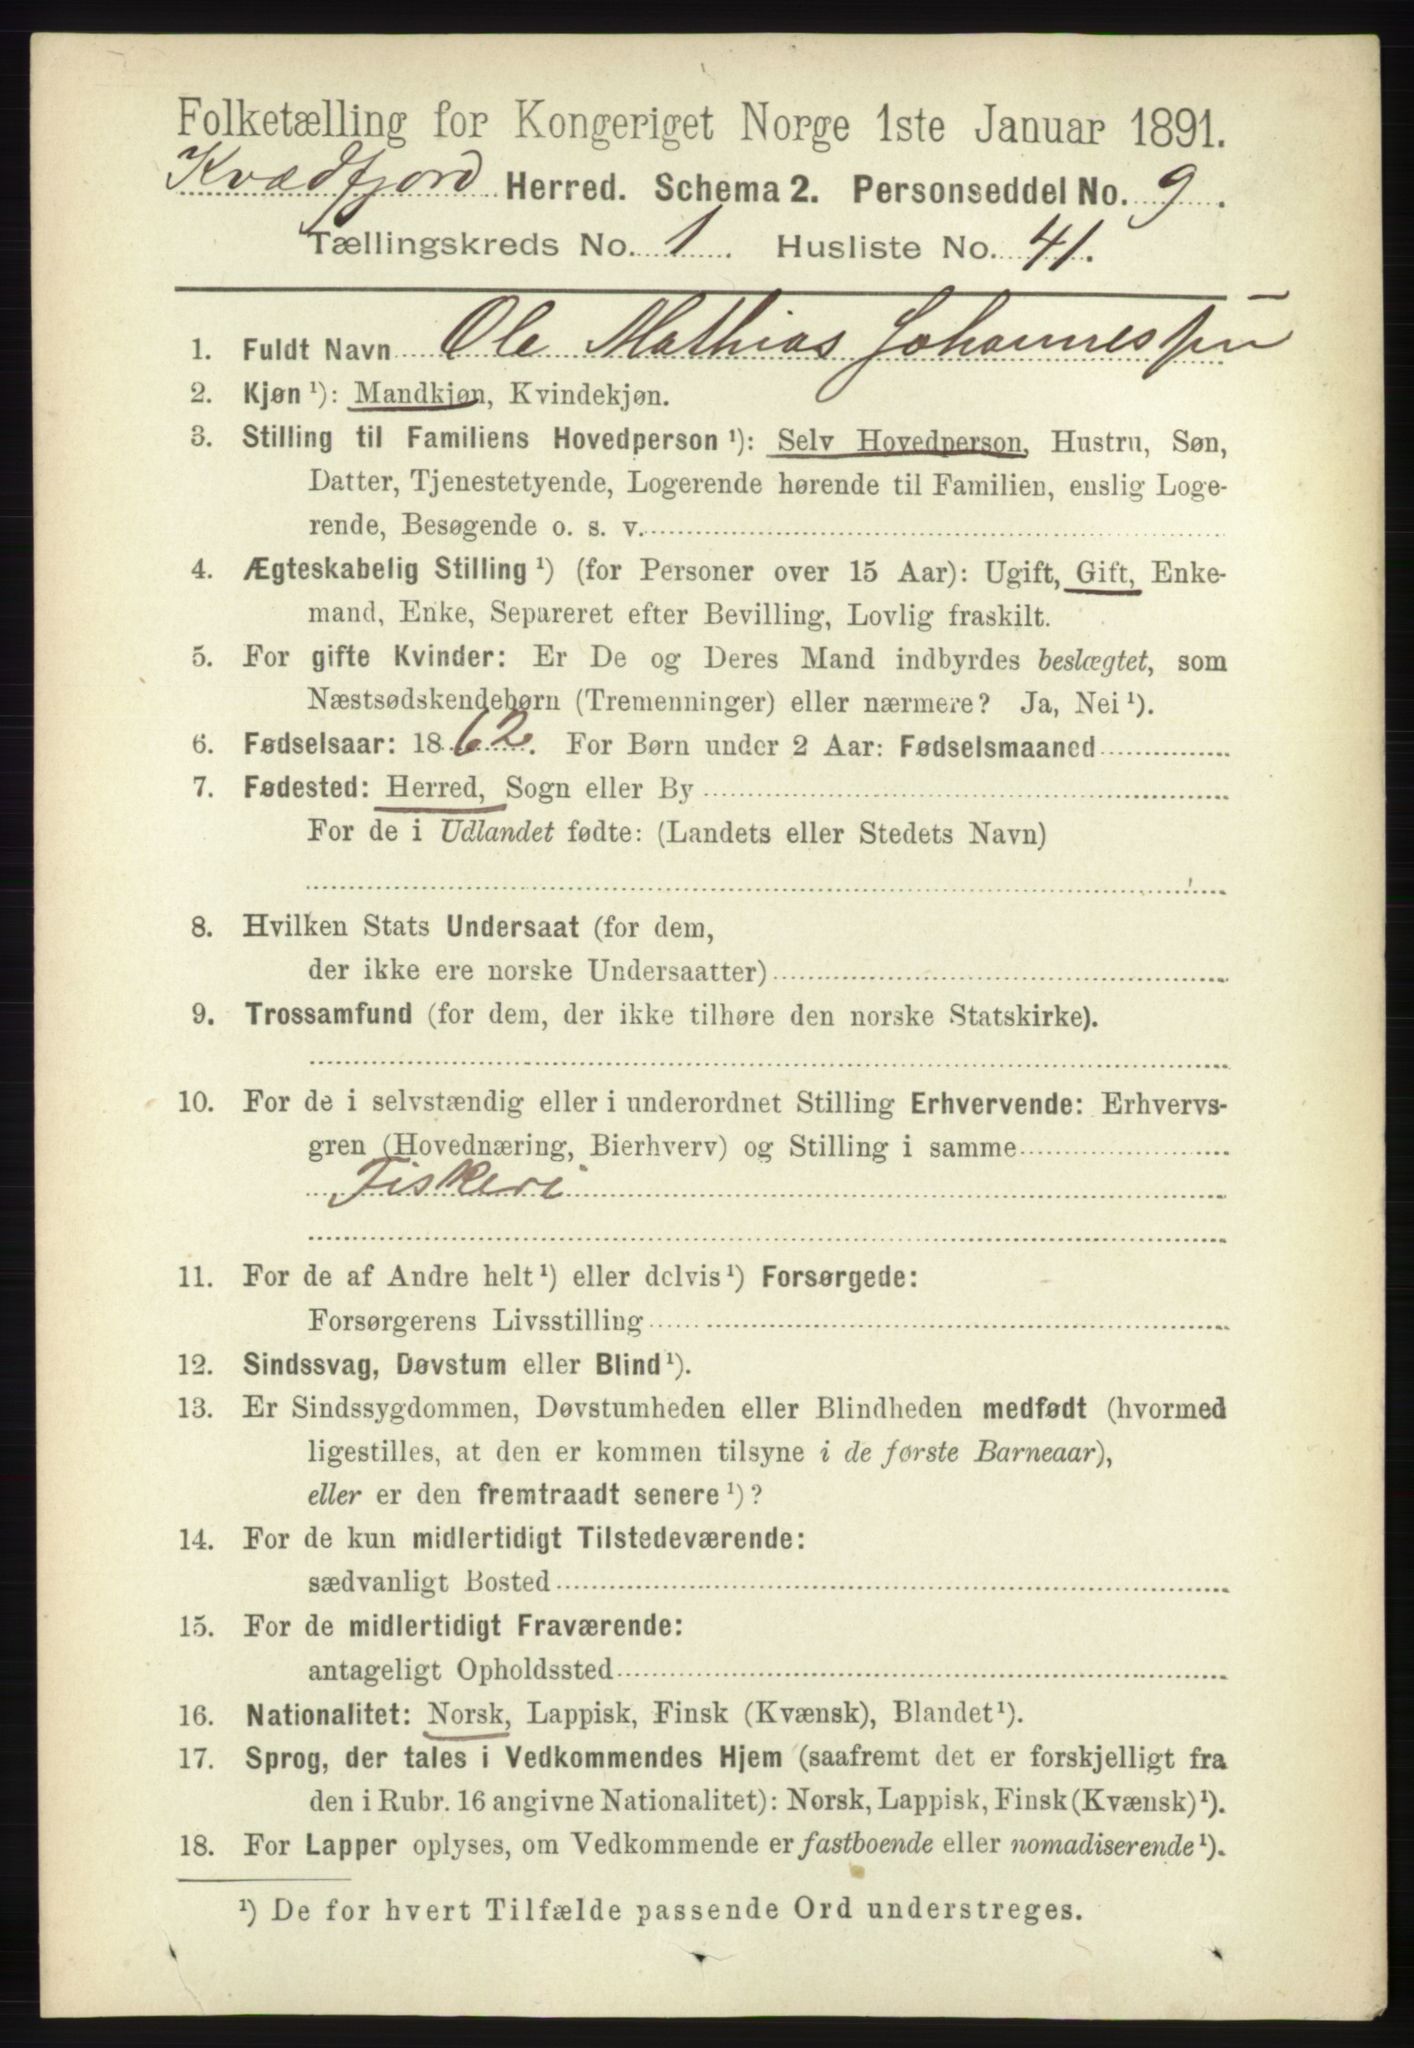 Folketælling for Kongeriget Norge 1ste Januar 1891.
Kvædfjord Herred. Schema 2. Personseddel No. 9.
Tællingskreds No. 1. Husliste No. 41.
1. Fuldt Navn Ole Mathias Johannessen
2. Kjøn ¹): Mandkjøn, Kvindekjøn.
3. Stilling til Familiens Hovedperson ¹): Selv Hovedperson, Hustru, Søn,
Datter, Tjenestetyende, Logerende hørende til Familien, enslig Loge-
rende, Besøgende o. s. v.
4. Ægteskabelig Stilling ¹) (for Personer over 15 Aar): Ugift, Gift, Enke-
mand, Enke, Separeret efter Bevilling, Lovlig fraskilt.
5. For gifte Kvinder: Er De og Deres Mand indbyrdes beslægtet, som
Næstsødskendebørn (Tremenninger) eller nærmere? Ja, Nei ¹).
6. Fødselsaar: 1862. For Børn under 2 Aar: Fødselsmaaned
7. Fødested: Herred, Sogn eller By
For de i Udlandet fødte: (Landets eller Stedets Navn)
8. Hvilken Stats Undersaat (for dem,
der ikke ere norske Undersaatter)
9. Trossamfund (for dem, der ikke tilhøre den norske Statskirke).
10. For de i selvstændig eller i underordnet Stilling Erhvervende: Erhvervs-
gren (Hovednæring, Bierhverv) og Stilling i samme
Fiskeri
11. For de af Andre helt ¹) eller delvis ¹) Forsørgede:
Forsørgerens Livsstilling
12. Sindssvag, Døvstum eller Blind ¹).
13. Er Sindssygdommen, Døvstumheden eller Blindheden medfødt (hvormed
ligestilles, at den er kommen tilsyne i de første Barneaar),
eller er den fremtraadt senere ¹)?
14. For de kun midlertidigt Tilstedeværende:
sædvanligt Bosted
15. For de midlertidigt Fraværende:
antageligt Opholdssted
16. Nationalitet: Norsk, Lappisk, Finsk (Kvænsk), Blandet ¹).
17. Sprog, der tales i Vedkommendes Hjem (saafremt det er forskjelligt fra
den i Rubr. 16 angivne Nationalitet): Norsk, Lappisk, Finsk (Kvænsk) ¹).
18. For Lapper oplyses, om Vedkommende er fastboende eller nomadiserende ¹).
¹) De for hvert Tilfælde passende Ord understreges.